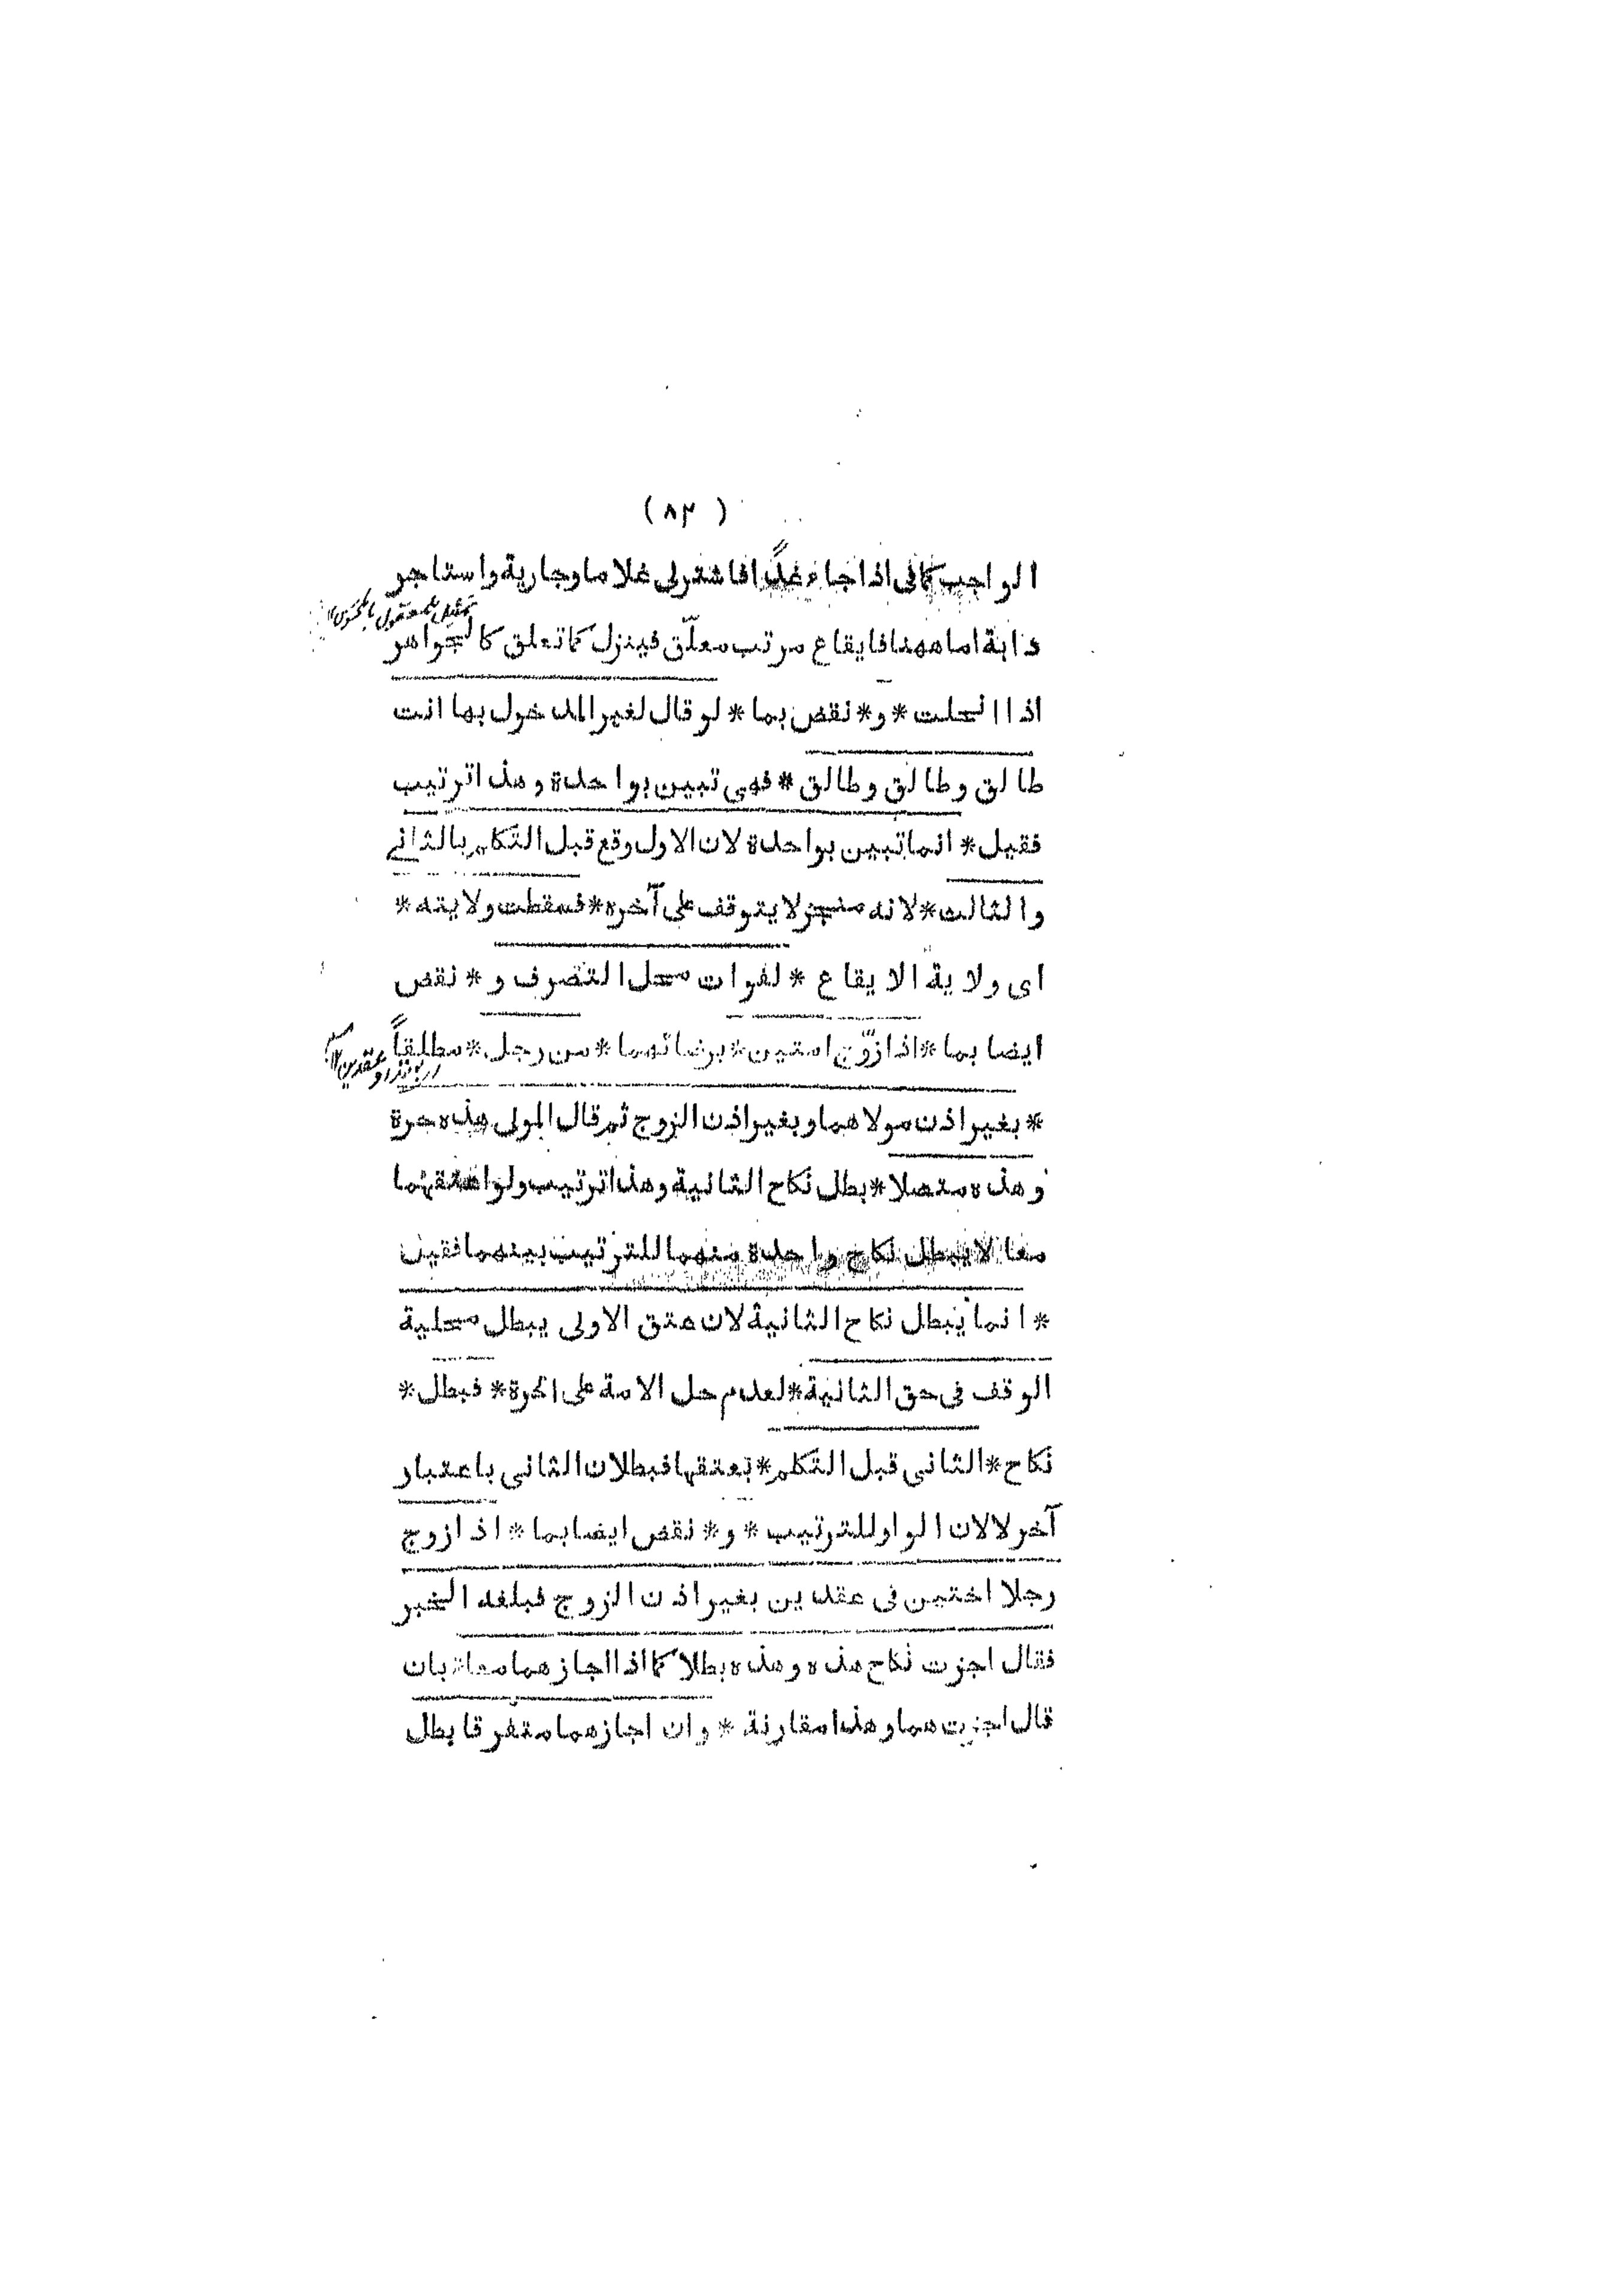 ( ٨٣ )
الواجب كما في اذا جاء غداً فاشترلي غلاما وجارية واستاجر
تمثيل للمعقول بالمحسوس ١٢
دابة اما ههنا فايقاع مرتب معلّق فينزل كما تعلق كالجواهر
اذا انحلت * و * نقض بما * لو قال لغير المدخول بها انت
طالق وطالق وطالق * فهى تبين بواحدة وهذا ترتيب
فقيل * انما تبين بواحدة لان الاول وقع قبل التكلم بالثاني
والثالث * لانه منجز لا يتوقف على آخره * فسقطت ولايته *
اى ولاية الايقاع * لفوات محل التصرف و * نقض
ايضا بما * اذا زوّج امتين * برضائهما * من رجل * مطلقاً
* بغير اذن مولاهما وبغير اذن الزوج ثم قال المولى هذه حرة
وهذه متصلا * بطل نكاح الثانية وهذا ترتيب ولو اعتقهما
معا لا يبطل نكاح واحدة منهما للترتيب بينهما فقيل
* انما يبطل نكاح الثانية لان عتق الاولى يبطل محلية
الوقف فى حق الثانية * لعدم حل الامة على الحرة * فبطل *
نكاح * الثانى قبل التكلم * بعتقها فبطلان الثانى باعتبار
آخر لا لان الواو للترتيب * و * نقض ايضا بما * اذا زوج
رجلا اختين فى عقدين بغير اذن الزوج فبلغه الخبر
فقال اجزت نكاح هذه وهذه بطلا كما اذا اجازهما معا * بان
قال اجزت هما وهذا مقارنة * وان اجازهما متفرقا بطل